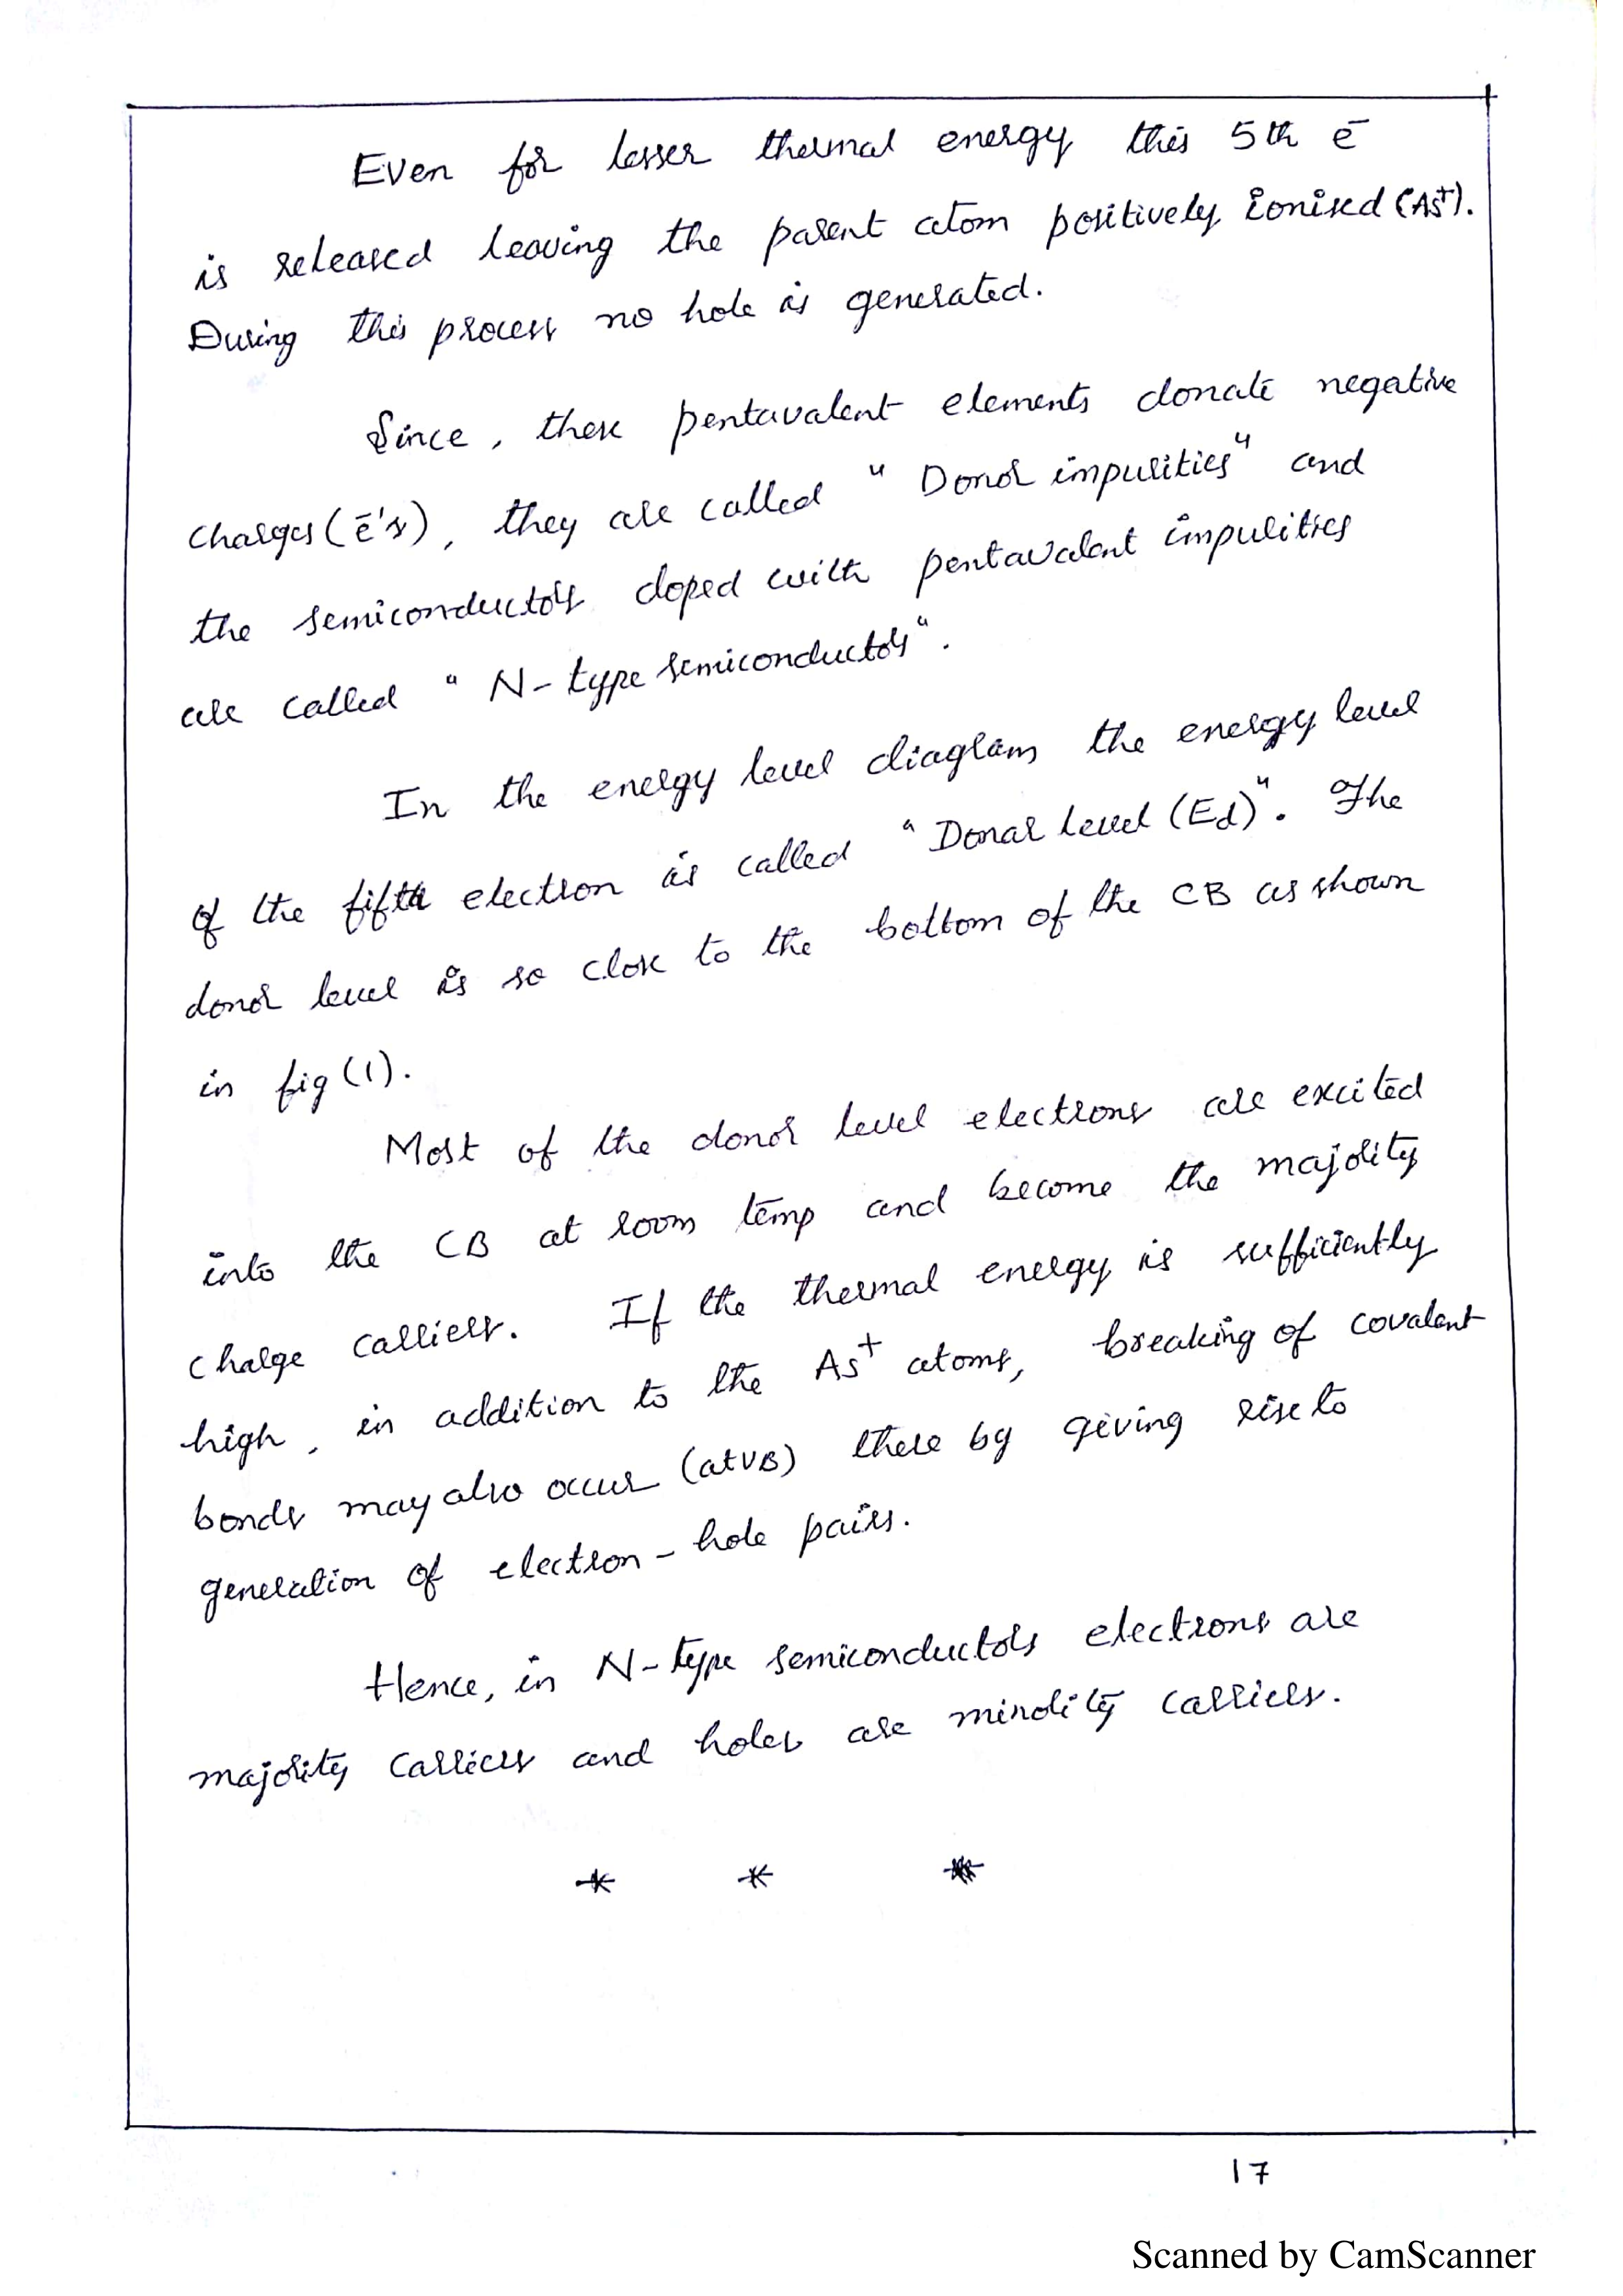 Even for lesser thermal energy this 5th ē
is released leaving the parent atom positively ionised (As⁺).
During this process no hole is generated.
Since, these pentavalent elements donate negative
charges (ē's), they are called "Donor impurities" and
the semiconductors doped with pentavalent impurities
are called "N-type semiconductors".
In the energy level diagram the energy level
of the fifth electron is called "Donar level (Ed)". The
donor level is so close to the bottom of the CB as shown
in fig (1).
Most of the donor level electrons are excited
into the CB at room temp and become the majority
charge carriers. If the thermal energy is sufficiently
high, in addition to the As⁺ atoms, breaking of covalent
bonds may also occur (at VB) there by giving rise to
generation of electron - hole pairs.
Hence, in N-type semiconductors electrons are
majority carriers and holes are minority carriers.
* * *
17
Scanned by CamScanner